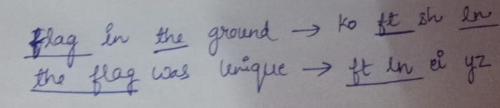 flag in the ground → ko ft sh ln
the flag was unique → ft ln ei yz